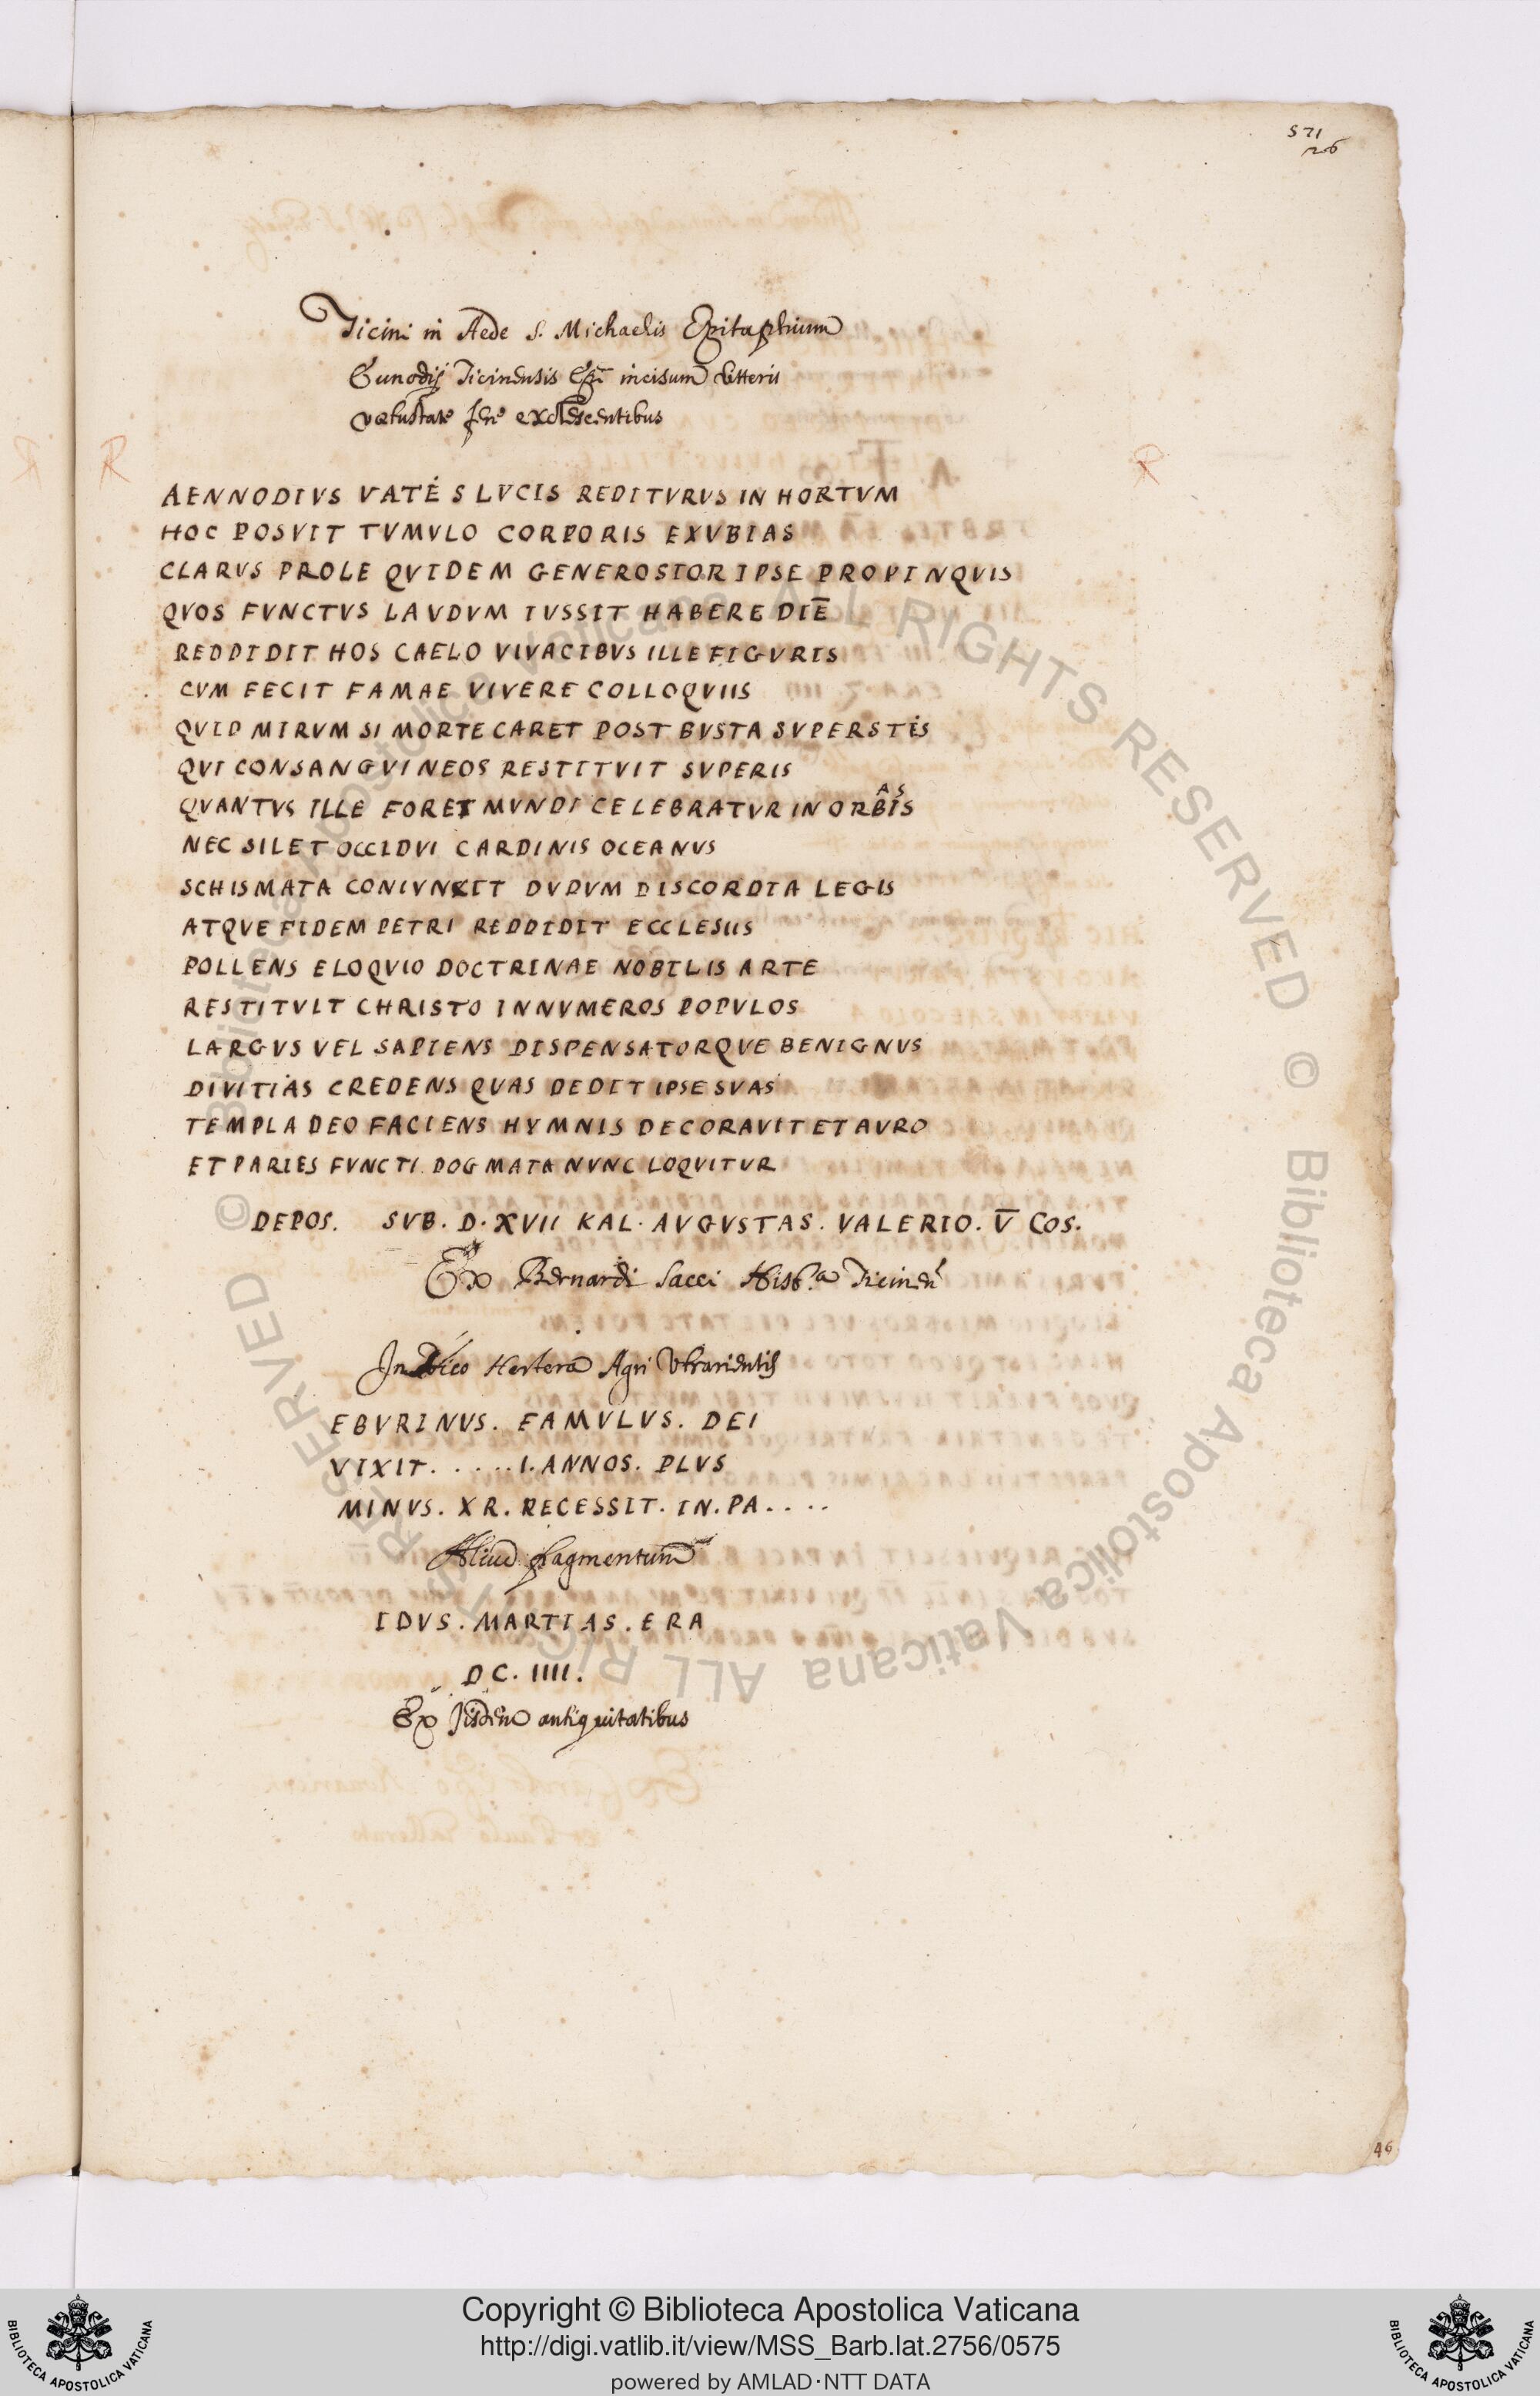 571
126
Ticini in Aede S. Michaelis Epitaphium
Eunodij Ticinensis Epi incisum litteris
vetustate fere exolescentibus
AENNODIVS VATES LVCIS REDITVRVS IN HORTVM
HOC POSVIT TVMVLO CORPORIS EXVBIAS
CLARVS PROLE QVIDEM GENEROSIOR IPSE PROPINQVIS
QVOS FVNCTVS LAVDVM IVSSIT HABERE DIĒ
REDDIDIT HOS CAELO VIVACIBVS ILLE FIGVRIS
CVM FECIT FAMAE VIVERE COLLOQVIIS
QVID MIRVM SI MORTE CARET POST BVSTA SVPERSTES
QVI CONSANGVINEOS RESTITVIT SVPERIS
QVANTVS ILLE FORET MVNDI CELEBRATVR IN ORBIS
AS
NEC SILET OCCIDVI CARDINIS OCEANVS
SCHISMATA CONIVNXIT DVDVM DISCORDIA LEGIS
ATQVE FIDEM PETRI REDDIDIT ECCLESIIS
POLLENS ELOQVIO DOCTRINAE NOBILIS ARTE
RESTITVIT CHRISTO INNVMEROS POPVLOS
LARGVS VEL SAPIENS DISPENSATORQVE BENIGNVS
DIVITIAS CREDENS QVAS DEDIT IPSE SVAS
TEMPLA DEO FACIENS HYMNIS DECORAVIT ET AVRO
ET PARIES FVNCTI DOGMATA NVNC LOQVITVR
DEPOS. SVB. D. XVII KAL. AVGVSTAS. VALERIO. V̄ COS.
Ex Bernardi Sacci Hist.a Ticinen
In Vico Hertera Agri Vtrarientis
EBVRINVS. FAMVLVS. DEI
VIXIT. . . . . I. ANNOS. PLVS
MINVS. XR. RECESSIT. IN. PA. . . .
Aliud fragmentum
IDVS. MARTIAS. ERA
DC. IIII.
Ex Iisdem antiquitatibus
46
© Biblioteca Apostolica Vaticana ALL RIGHTS RESERVED © Biblioteca Apostolica Vaticana ALL RIGHTS RESERVED
Copyright © Biblioteca Apostolica Vaticana
http://digi.vatlib.it/view/MSS_Barb.lat.2756/0575
powered by AMLAD·NTT DATA
BIBLIOTECA APOSTOLICA VATICANA
BIBLIOTECA APOSTOLICA VATICANA